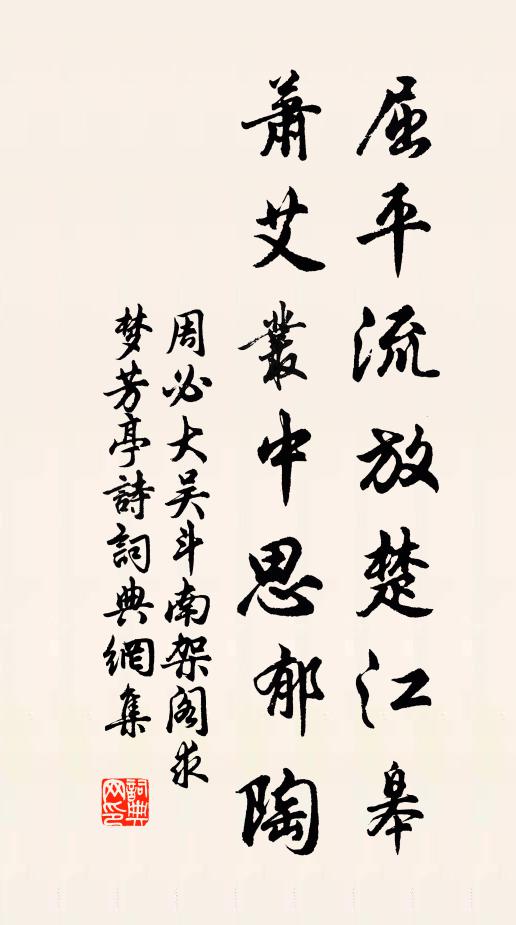 屈平流放楚江皋
萧艾叢中思郁陶
周必大吴斗南架阁求
梦芳亭詩詞典網集
詞典网印